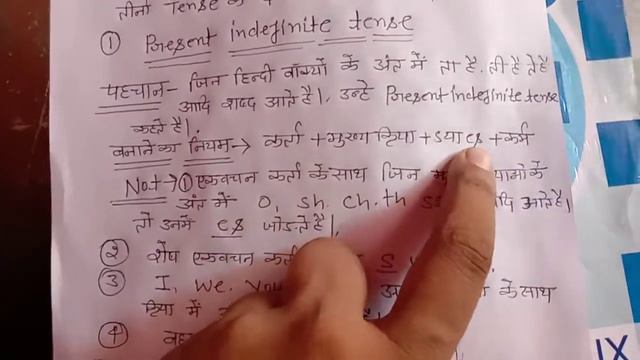 तीनो Tense
① Present indefinite tense
पहचान - जिन हिन्दी वाक्यों के अंत में ता है. ती है ते है
आदि शब्द आते है।, उन्हे Present indefinite tense
कहते है।
बनाने का नियम → कर्ता + मुख्य क्रिया + s या es + कर्म
Not → ① एकवचन कर्ता के साथ जिन
अंत में O, sh. ch. th आते है।
तो उनमें es जोडते है।
② शेष एकवचन s
③ I, We. You के साथ
क्रिया में
④
IX